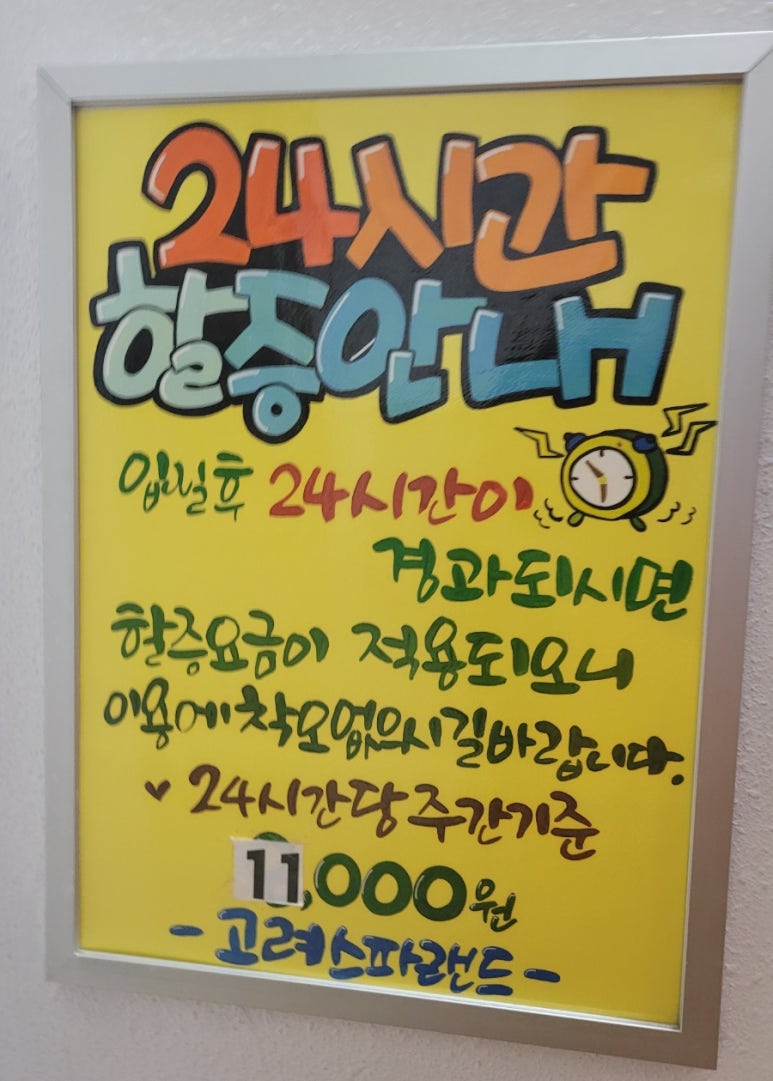 24시간
할증안내
입실후 24시간이
경과되시면
할증요금이 적용되오니
이용에 착오없으시길바랍니다.
♥ 24시간당 주간기준
11,000원
- 고려스파랜드 -